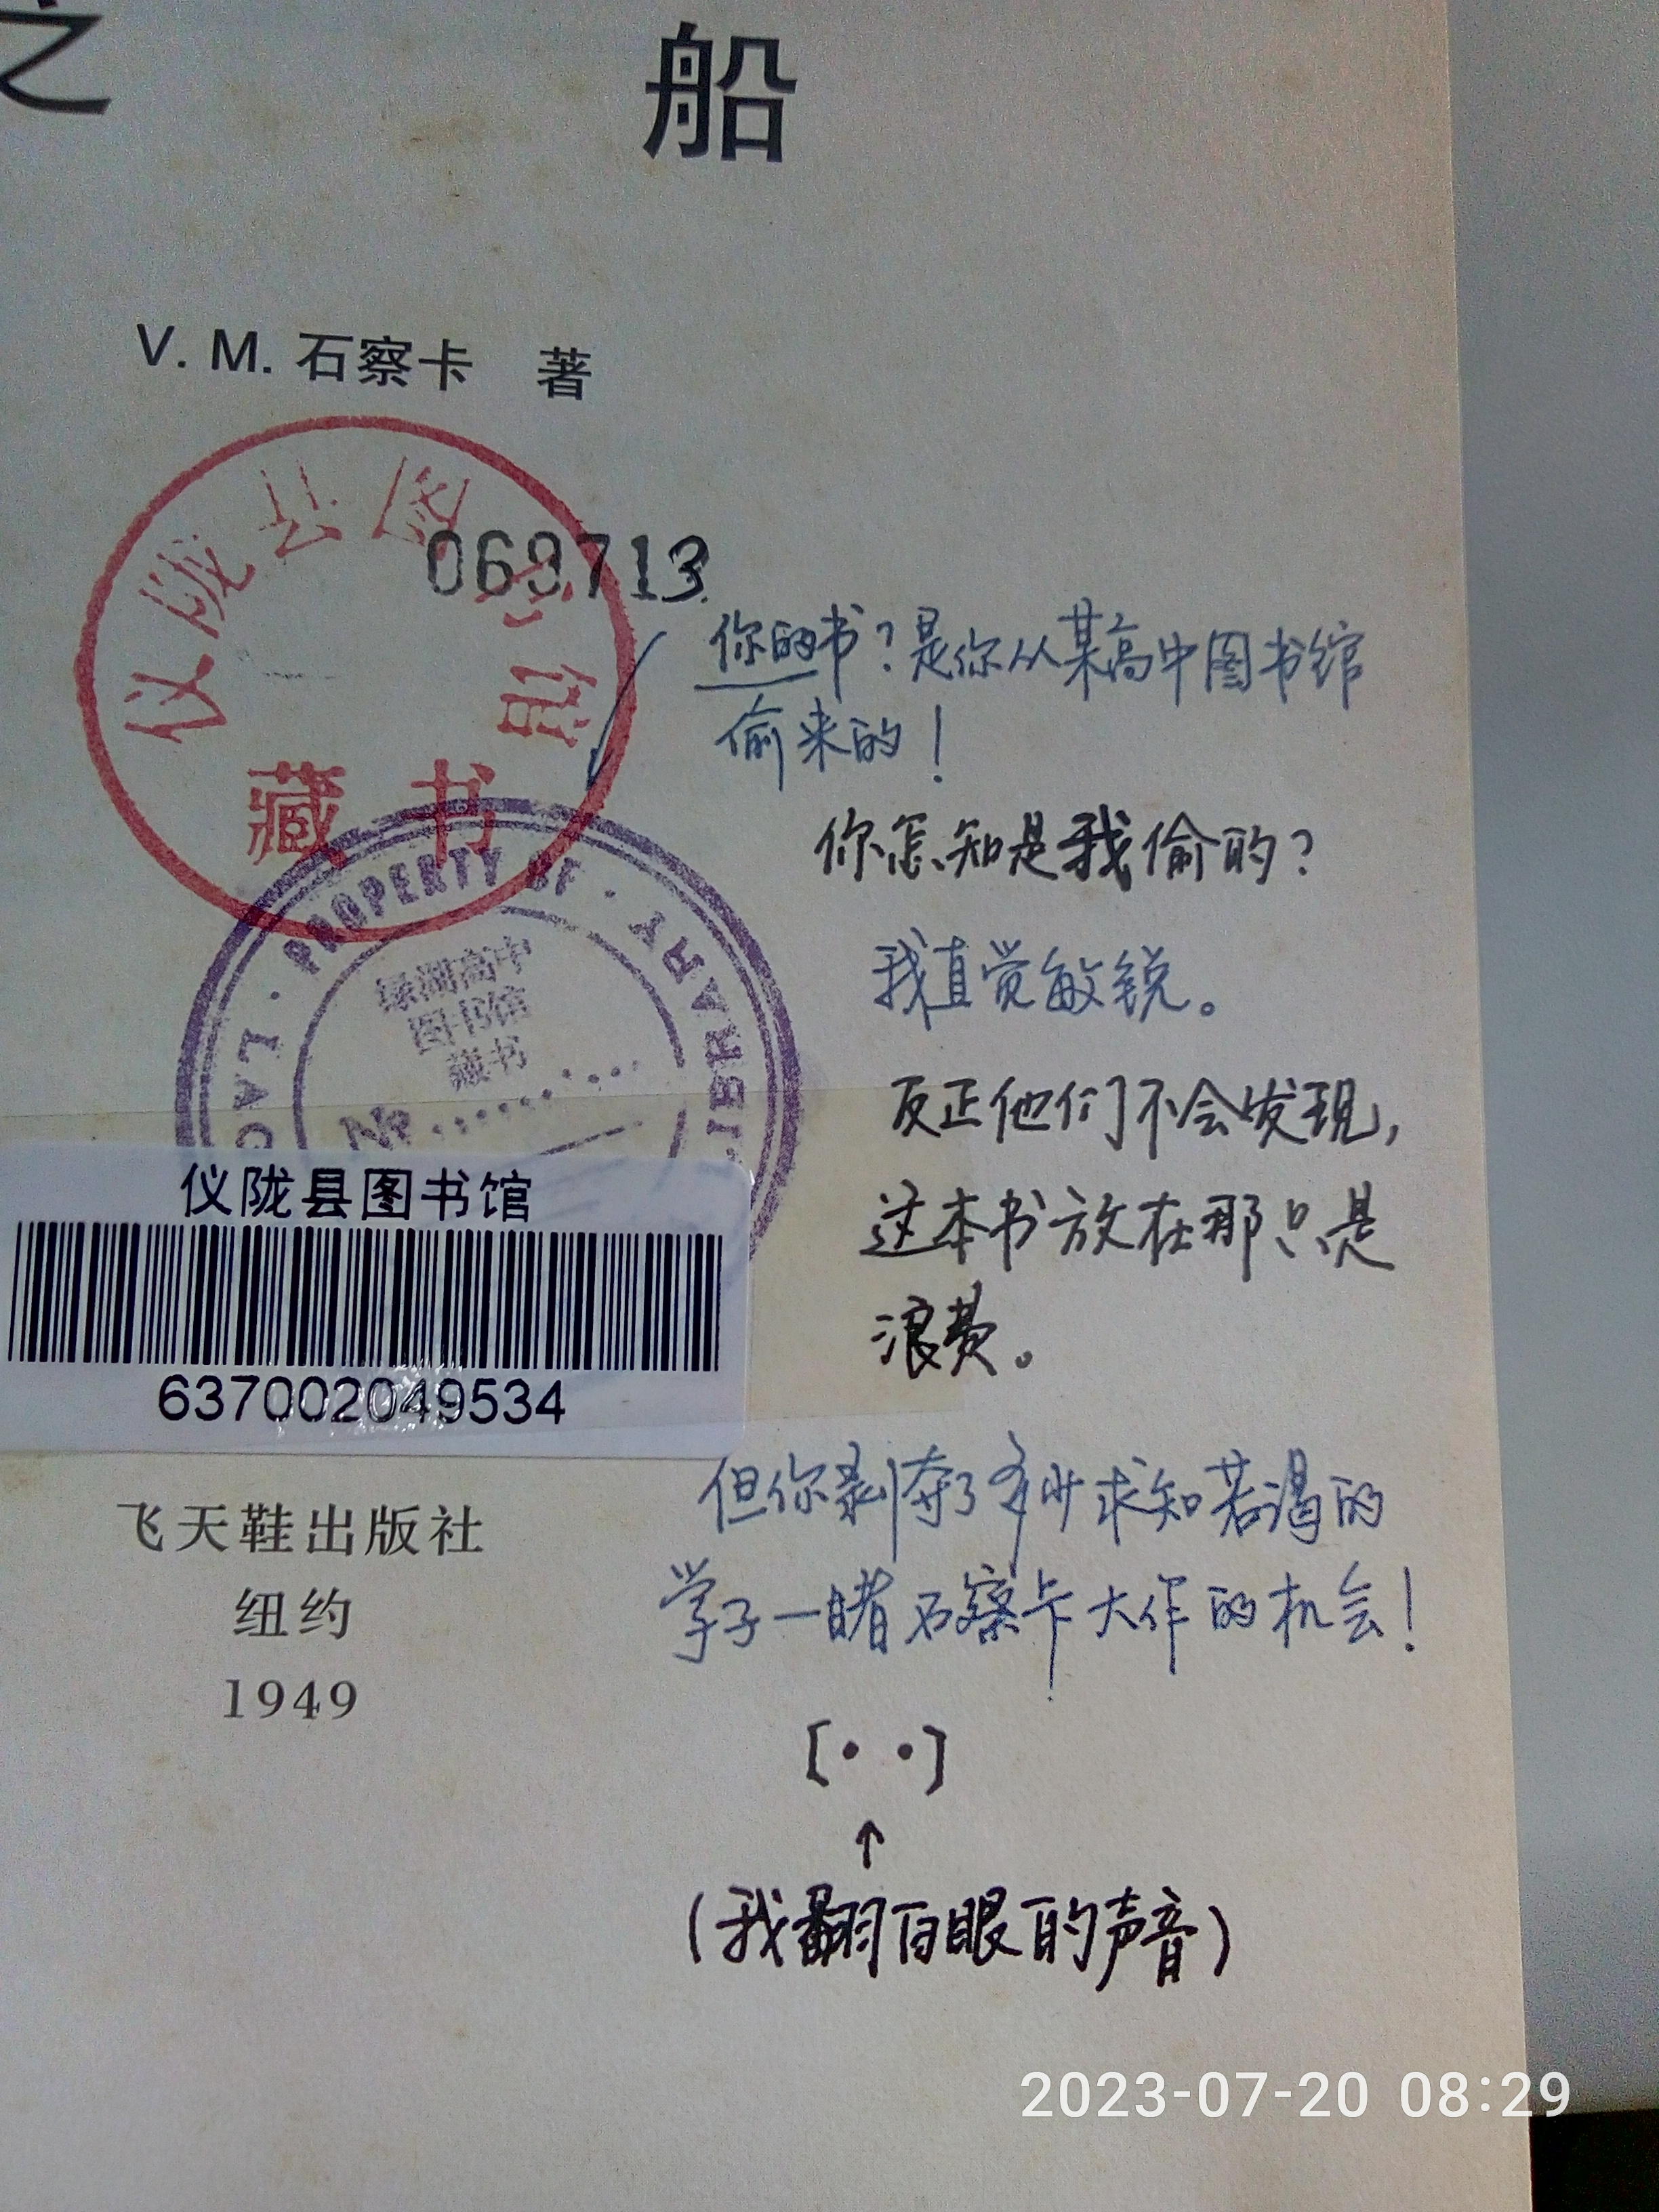 之 船
V. M. 石察卡 著
仪陇县图书馆
藏书
069713
你的书？是你从某高中图书馆
偷来的！
你怎知是我偷的？
我直觉敏锐。
反正他们不会发现，
这本书放在那只是
浪费。
PROPERTY OF · LIBRARY
LAG
高中
图书馆
藏书
No
仪陇县图书馆
637002049534
但你剥夺了多少求知若渴的
学子一睹石察卡大作的机会！
飞天鞋出版社
纽约
1949
[· ·]
↑
(我翻白眼的声音)
2023-07-20 08:29